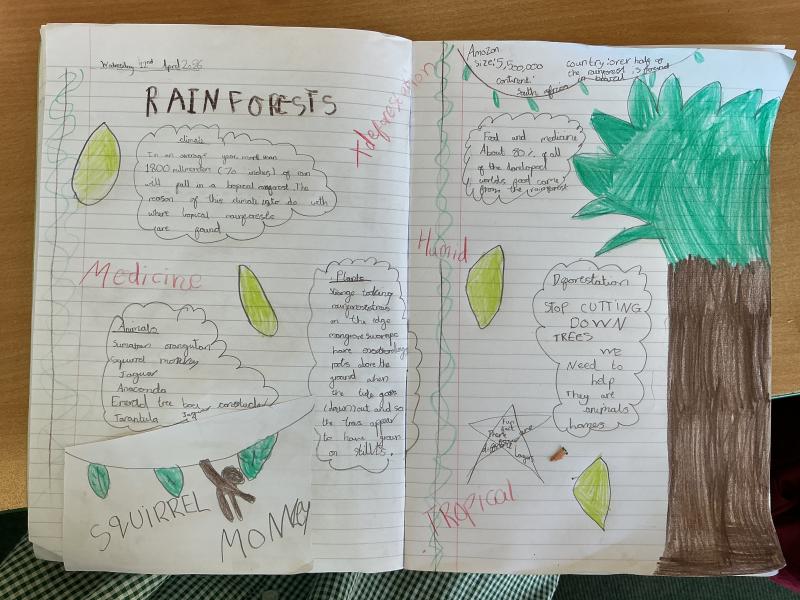 RAINFORESTS
climate
In an average year more than
1800 millimeters (70 inches) of rain
will fall in a tropical rainforest. The
reason of this climate to do with
where tropical rainforests
are found
Medicine
Animals
Sumatran orangutan
Squirrel monkey
Jaguar
Anaconda
Emerald tree boa
Tarantula
Plants
Strange looking
on the edge
mangrove swamps
have
roots above the
ground when
the tide goes
out and so
the trees appear
to have grown
on stilts.
SQUIRREL
MONKEY
X deforestation
Amazon
size: 5,500,000
continent:
South africa
country: over half of
the rainforest is
in brazil
Food and medicine
About 80% of all
of the developed
worlds food came
from the rainforest
Humid
Deforestation
STOP CUTTING
DOWN
TREES
WE
Need to
help
They are
animals
homes
Fun
fact
There are
different
layers
TROPICAL